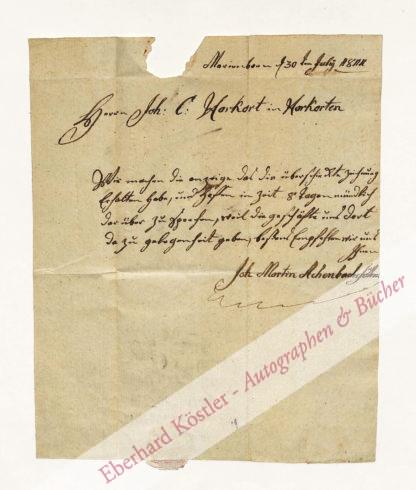 Marienborn d 30 ten July 1811
Herrn Joh: C: Harkort in Harkorten
Wir machen die anzeige das die überschickte Zeichnung
Erhalten habe, und hoffen in Zeit 8 Tagen mündlich
darüber zu sprechen, weil die geschäfte uns dort
da zu gelegenheit geben, bestens Empfehlen wir uns
Ihnen
Joh Martin Achenbach
Eberhard Köstler - Autographen & Bücher